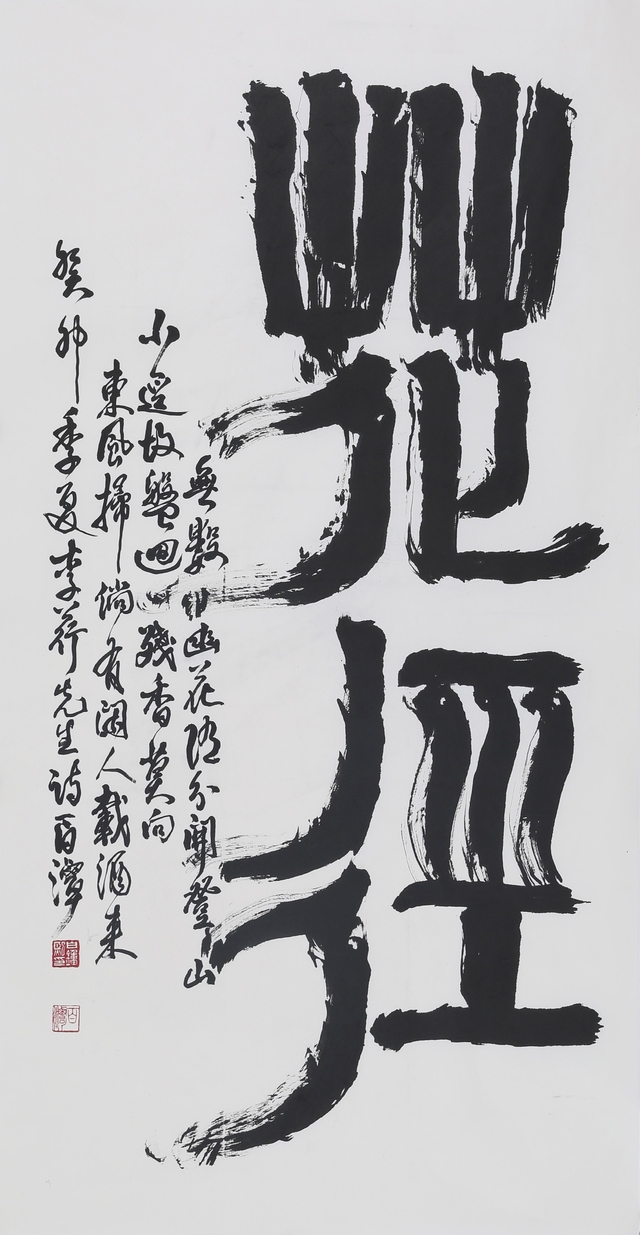 花徑
無數幽花隨分開登山
小逕故盤迴殘香莫向
東風掃倘有閑人載酒來
癸卯季夏李荇先生詩百潭